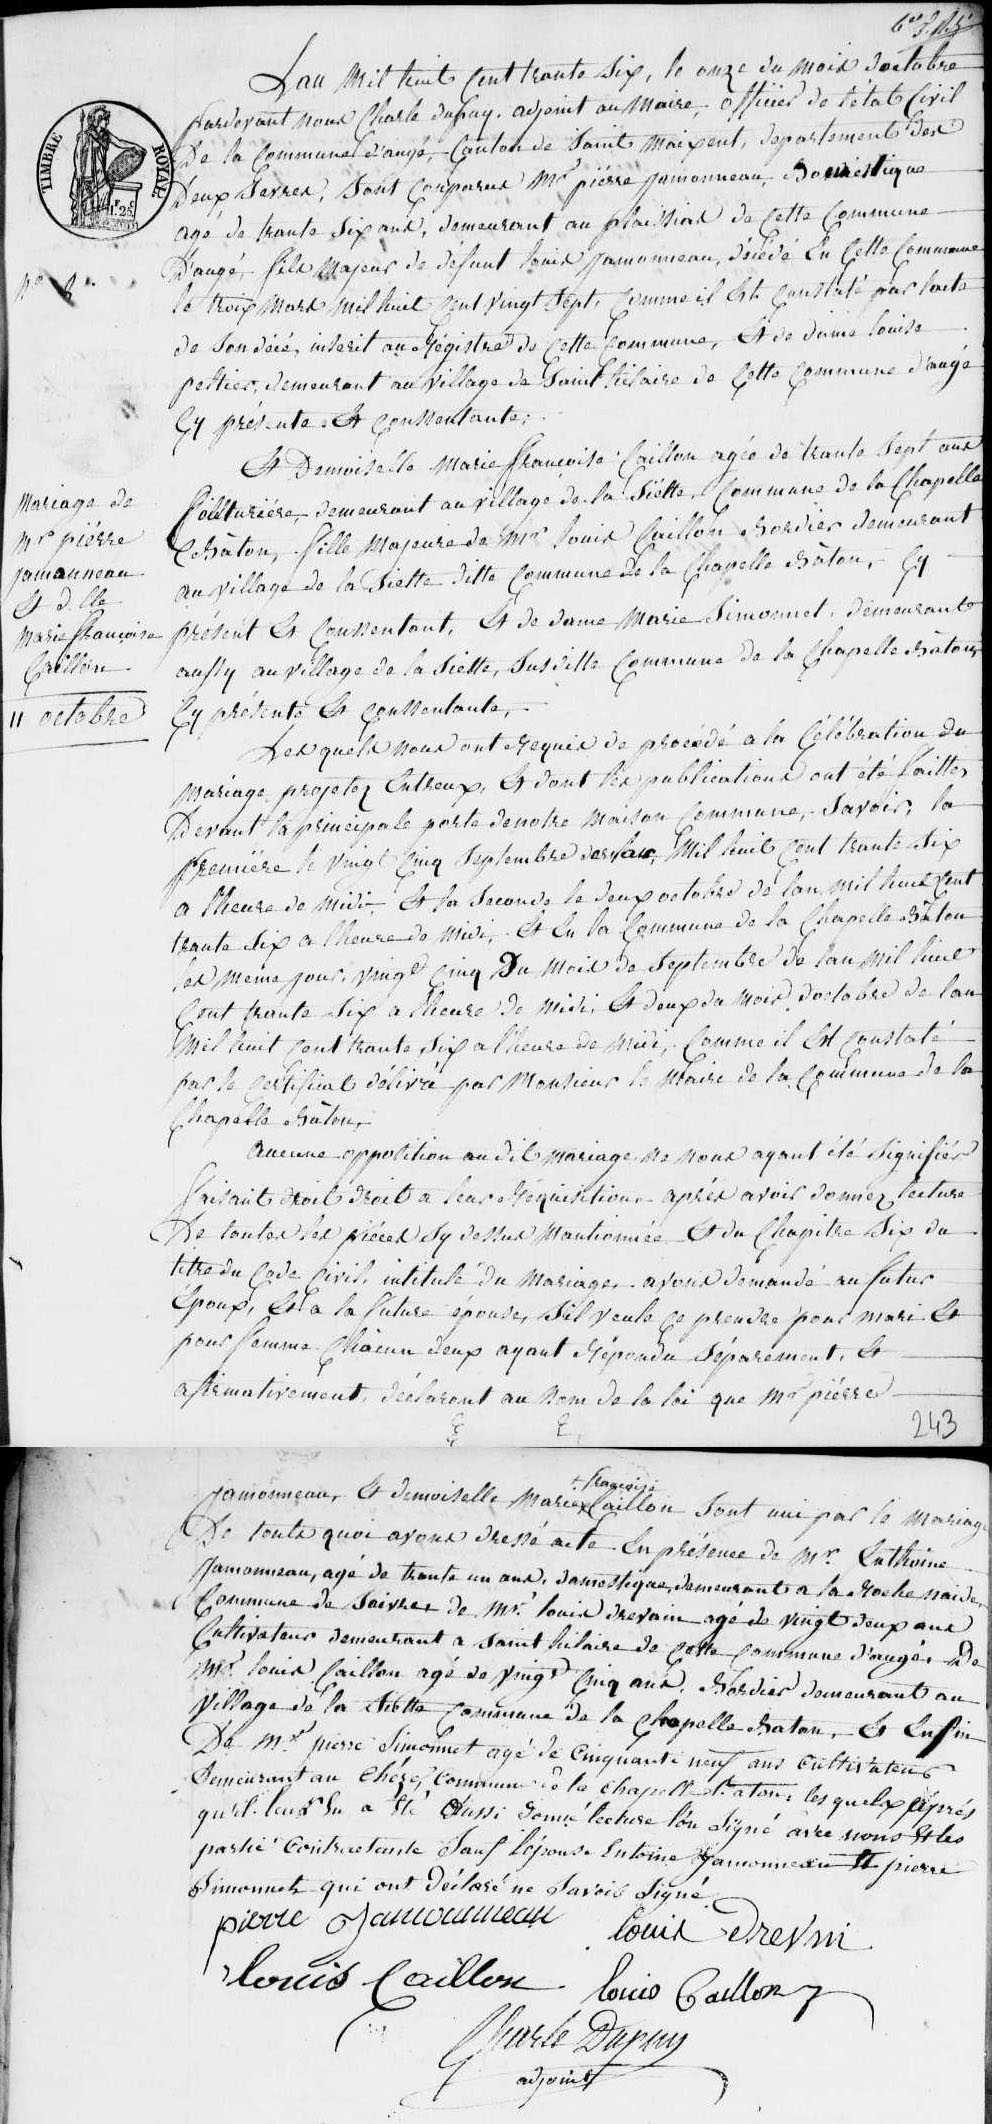 Lan Mil huit Cent trante Six, le onze du Mois doctobre
pardevant nous Charle dupuy, adjoint au Maire, officier de letat Civil
De la Commune d'augé, Canton de Saint Maixent, departement des
Deux Sevres, Sont Conparus Mr piérre Jamonneau, Domestique
agé de trante Six ans, demeurant au plaissias de Cette Commune
D'augé, fils Majeur de défunt louis Jamonneau, décédé En Cette Commune
le troix Mars Mil huit Cent vingt Sept, Comme il Est Constaté par lacte
de Son décé, inscrit au Régistre de Cette Commune, Et de dame louise
peltier, demeurant au village de Saint hilaire de Cette Commune d'augé
Cy présente Et Conssentante;
TIMBRE ROYAL
1f 25c
No 8
Mariage de
Mr piérre
Jamanneau
Et d.lle
Marie françoise
Caillon
11 octobre
Et Demoiselle Marie françoise Caillon agée de trante Sept ans
Couturiére, demeurant au village de la Siette, Commune de la Chapelle
Bâton, fille Majeure de Mr louis Caillon Bordier demeurant
au village de la Siette ditte Commune de la Chapelle Bâton, Cy
présent Et Conssentant, Et de dame Marie Simonnet, demeurante
aussy au village de la Siette, Susditte Commune de la Chapelle Bâton
Cy présente Et Conssentante,
Les quels nous ont Requis de procédé a la Célébration du
Mariage projetez Entreux, Et dont les publications ont été faittes
Devant la principale porte denotre Maison Commune, Savoir, la
premiére le vingt Cinq Septembre de lan, Mil huit Cent trante Six
a lheure de Midi, Et la Seconde le deux octobre de lan Mil huit Cent
trante Six a lheure de Midi, Et En la Commune de la Chapelle Bâton
les meme jour, vingt Cinq Du Mois de Septembre de lan Mil huit
Cent trante Six a lheure de Midi, Et deux du Mois doctobre de lan
Mil huit Cent trante Six a lheure de Midi, Comme il Est Constaté
par le Certificat délivré par Monsieur le Maire de la Commune de la
Chapelle Bâton,
aucune opposition au dit Mariage ne nous ayant été Signifiér
faisant droit droit a leur Réquisition aprés avoir donnez lecture
De toutes les piéces Sy dessus Mantionnée Et du Chapitre Six du
titre du Code Civil, intitulé du Mariage, avons demandé au futur
Epoux, Et a la future épouse, Sil veule Ce prendre pour Mari Et
pour femme Chacun deux ayant Répondu Séparement, Et
afirmativement, déclaront au Nom de la loi que Mr piérre
243
Jamonneau, Et demoiselle Marie Caillon Sont uni par le Mariage
+ françoise
De toute quoi avons dressé acte En présence de Mr. Enthoine
Jamonneau, agé de trante un ans, domestique, demeurant a la Roche
Commune de Saivres de Mr. louis drevain agé de vingt deux ans
Cultivateur demeurant a Saint hilaire de Cette Commune d'augé, De
Mr. louis Caillon agé de vingt Cinq ans, Bordier demeurant au
village de la Siette Commune de la Chapelle Baton, Et Enfin
De Mr. pierre Simonnet agé de Cinquante neuf ans Cultivateur
Demeurant au Commune de la Chapelle Baton, les quelx aprés
qu'il leur En a été aussi donné lecture lon Signé avec nous Et les
partie Contractante Sauf l'épouse Entoine Jamonneau Et pierre
Simonnet qui ont Déclaré ne Savoir Signé
pierre Jamounneau louis Drevin
louis Caillon louis Caillon
Charle Dupuy
adjoint